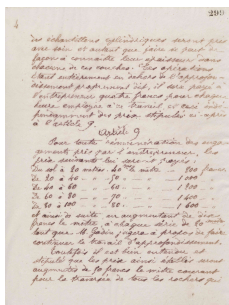 299
des échantillons cylindriques seront pris
avec soin et autant que faire se peut de
façon à connaître leur épaisseur dans
chacune de ces couches. Ces opérations
étant entièrement en dehors de l'approfon-
dissement proprement dit, il sera payé à
l'entrepreneur quatre francs pour chaque
heure employée à ce travail et cela indé-
pendamment des prix stipulés ci-après
à l'article 9.
Article 9
Pour toute rémunération des enga-
gements pris par l'entrepreneur, les
prix suivants lui seront payés:
Du sol à 20 mètres . le mètre 800 francs
De 20 à 40 1000
De 40 à 60 1200
De 60 à 80 1400
De 80 à 100 1600
et ainsi de suite en augmentant de
francs le mètre à chaque série de 20 mètres
tant que M. Godin jugera à propos de faire
continuer le travail d'approfondissement.
Toutefois il est bien entendu et
stipulé que les prix ainsi établis seront
augmentés de 50 francs le mètre courant
pour la traversée de tous les rochers qui